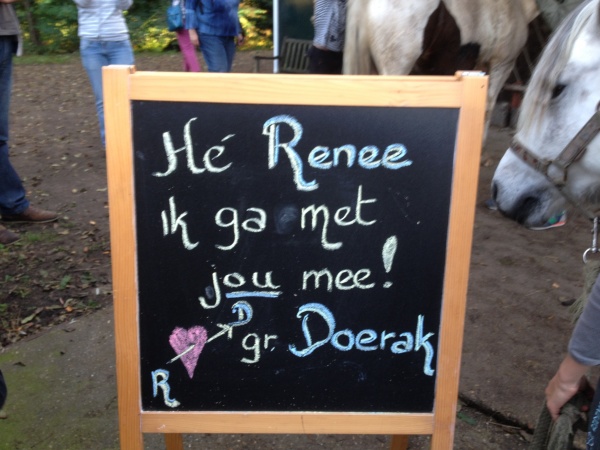 Hé Renee
ik ga met
jou mee!
D
gr. Doerak
R